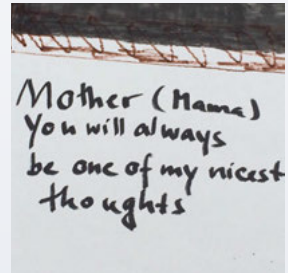 Mother (Mama)
You will always
be one of my nicest
thoughts